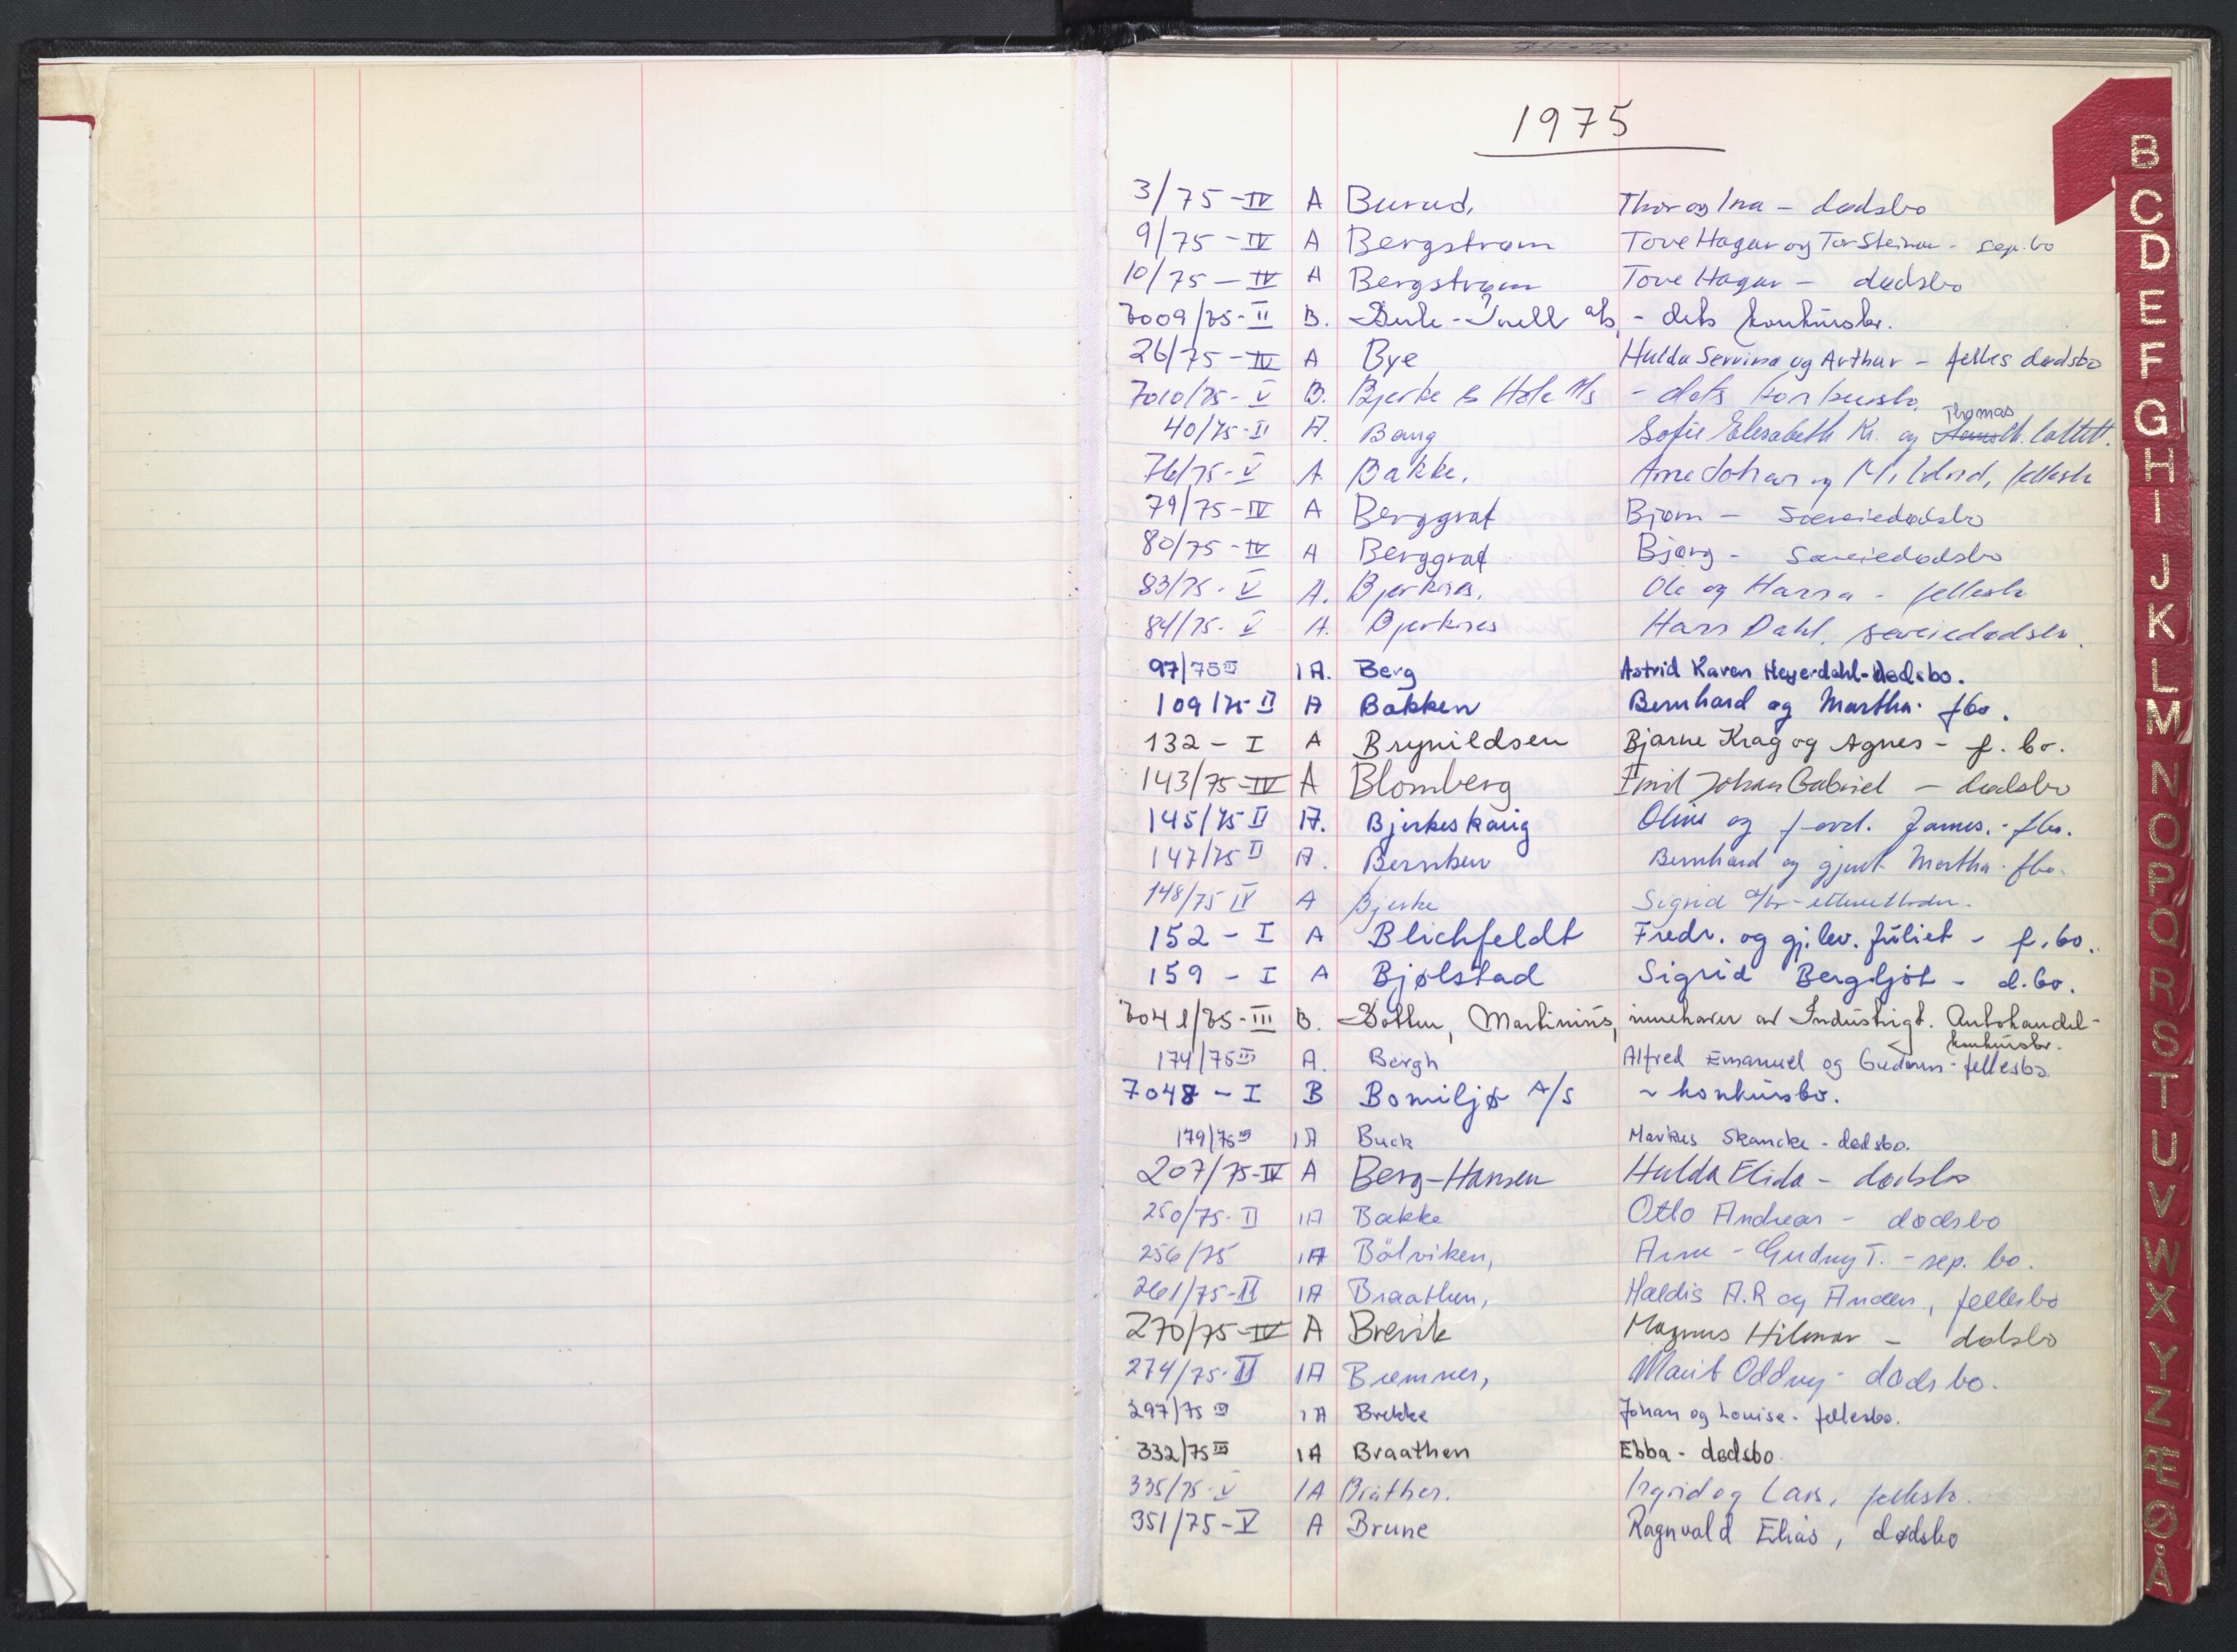 1975
3/75-IV A Burud, Thor og Ina - dødsbo
9/75-IV A Bergstrøm Tove Hagar og Tor Steinar - sep.bo
10/75-IV A Bergstrøm Tove Hagar - dødsbo
7009/75-II B. a/s, - dets konkursbo.
26/75-IV A Bye Hulda Servina og Arthur - felles dødsbo
7010/75-V B. Bjerke & Hole A/S - dets konkursbo
40/75-II A. Bang Sofie Elisabeth Kr. og Thomas
76/75-V A. Bakke, Arne Johan og fellesbo
79/75-IV A Berggraf Bjørn - særeiedødsbo
80/75-IV A Berggraf Bjørg - særeiedødsbo
83/75-V A. Bjerknes, Ole og Hanna - fellesbo
84/75-V A. Bjerknes Hans Dahl, særeiedødsbo.
97/75III 1A. Berg Astrid Karen Heyerdahl-dødsbo.
109/75-II A Bakken Bernhard og Martha. fbo.
132-I A Brynildsen Bjarne Krag og Agnes - f.bo.
143/75-IV A Blomberg Emil Johan Gabriel - dødsbo
145/75 II A. Bjerkeskaug Oline og James. - fbo.
147/75 II A. Berntsen Bernhard og gjenl. Martha. fbo.
148/75 IV A Bjerke Sigrid
152-I A Blichfeldt Fredr. og gj.lev. Juliet - f.bo.
159-I A Bjølstad Sigrid Bergljot - d.bo.
7041/75-III B. Martinius, innehaver av Industrigt. Autohandel-
konkursbo.
174/75III A. Bergh Alfred Emanuel og Gudrun-fellesbo.
7048-I B Bomiljø A/S ~ konkursbo.
179/75III 1A Buck Markus Skancke - dødsbo.
207/75-IV A Berg-Hansen Hulda Elida - dødsbo
250/75-II 1A Bakke Otto Andreas - dødsbo
256/75 1A Bölviken, Arne - Gudny T. - sep. bo.
261/75-II 1A Braathen, Haldis A.R og Anders, fellesbo
270/75-IV A Brevik Magnus Hilmar - dødsbo
274/75-II 1A Bremnes, Marit Oddny - dødsbo.
297/75 III 1A Brekke Johan og Louise - fellesbo.
332/75 III 1A Braathen Ebba - dødsbo.
335/75-V 1A Bråthen. Ingrid og Lars, fellesbo.
351/75-V A Brune Ragnvald Elias, dødsbo
B
C
D
E
F
G
H
I
J
K
L
M
N
O
P
Q
R
S
T
U
V
W
X
Y
Z
Æ
Ø
Å